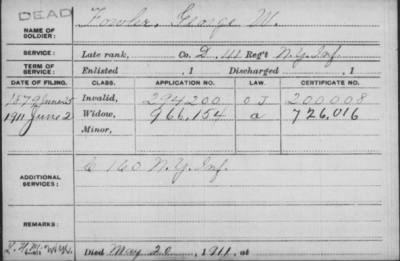 DEAD
NAME OF SOLDIER: Fowler, George W.
SERVICE: Late rank, Co. D, 111 Reg't N.Y. Inf.
TERM OF SERVICE: Enlisted , 1 Discharged , 1
DATE OF FILING. CLASS. APPLICATION NO. LAW. CERTIFICATE NO.
1879 June 25 Invalid, 294200 200008
1911 June 2 Widow, 966,154 a 726,016
Minor,
ADDITIONAL SERVICES: C 160 N.Y. Inf.
REMARKS:
Died May 20, 1911, at